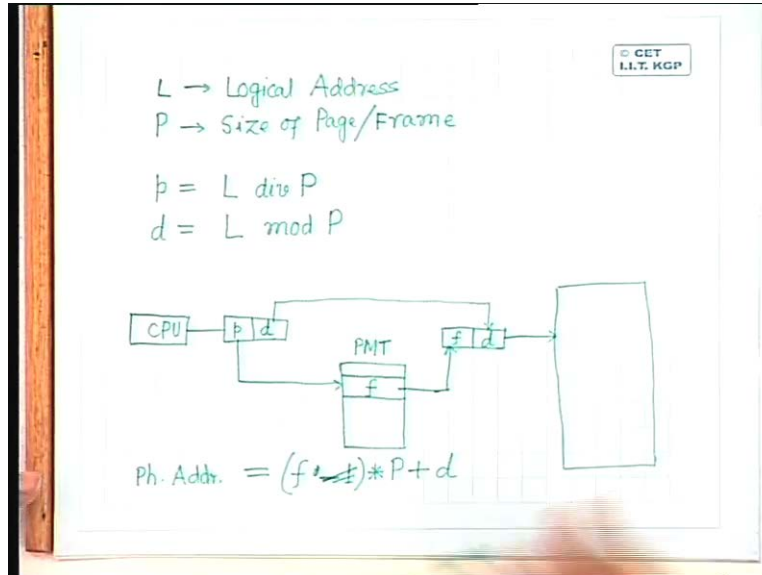 © CET
I.I.T. KGP
L → Logical Address
P → Size of Page/Frame
p = L div P
d = L mod P
CPU p d f d
PMT
f
Ph. Addr. = (f )*P+d